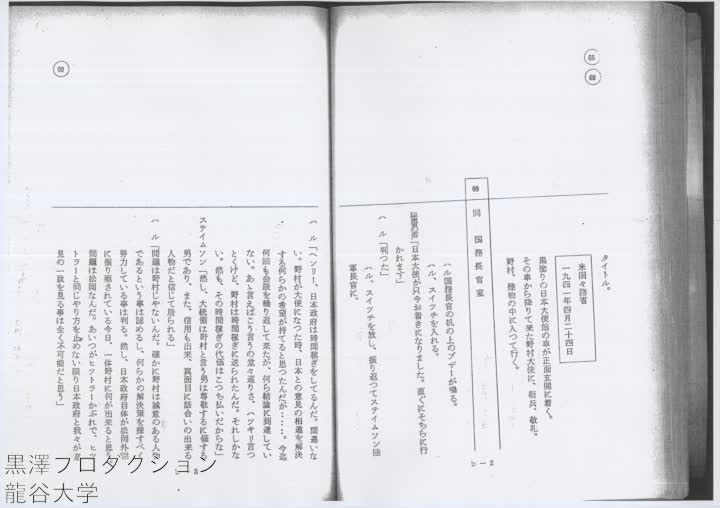 65
69
タイトル。
米国々務省
一九四一年四月二十四日
黒塗りの日本大使館の車が正面玄関に着く。
その車から降りて来た野村大使に、衛兵、敬礼。
野村、建物の中に入つて行く。
66 同 国務長官室
ハル国務長官の机の上のブザーが鳴る。
ハル、スイツチを入れる。
秘書の声「日本大使が只今お着きになりました。直ぐにそちらに行
かれます」
ハル「判つた」
ハル、スイツチを放し、振り返つてステイムソン陸
軍長官に、
b－2
80
ハル「ヘンリー、日本政府は時間稼ぎをしてるんだ。間違いな
い。野村が大使になつた時、日本との意見の相違を解決
する何らかの希望が持てると思つたんだが‥‥。今迄
何回も会談を繰り返して来たが、何ら結論に到達してい
ない。あゝ言えばこう言うの堂々巡りさ、ハツキリ言つ
とくけど、野村は時間稼ぎに送られたんだ。それしかな
い。然も、その時間稼ぎの代価はこつち払いだからな」
ステイムソン「然し、大統領は野村と言う男は尊敬するに値する
男であり、また、信用も出来、真面目に話合いの出来る
人物だと信じて居られる」
ハル「問題は野村じやないんだ。確かに野村は誠意のある人物
であるという事は認めるし、何らかの解決策を探すべく
努力している事は判る。然し、日本政府自体が松岡外相
に振り廻されている今日、一体野村に何が出来ると思う
問題は松岡なんだ。あいつがヒツトラーかぶれで、ヒツ
トラーと同じやり方を止めない限り日本政府と我々が意
見の一致を見る事は全く不可能だと思う」
b 3
黒澤プロダクション
龍谷大学